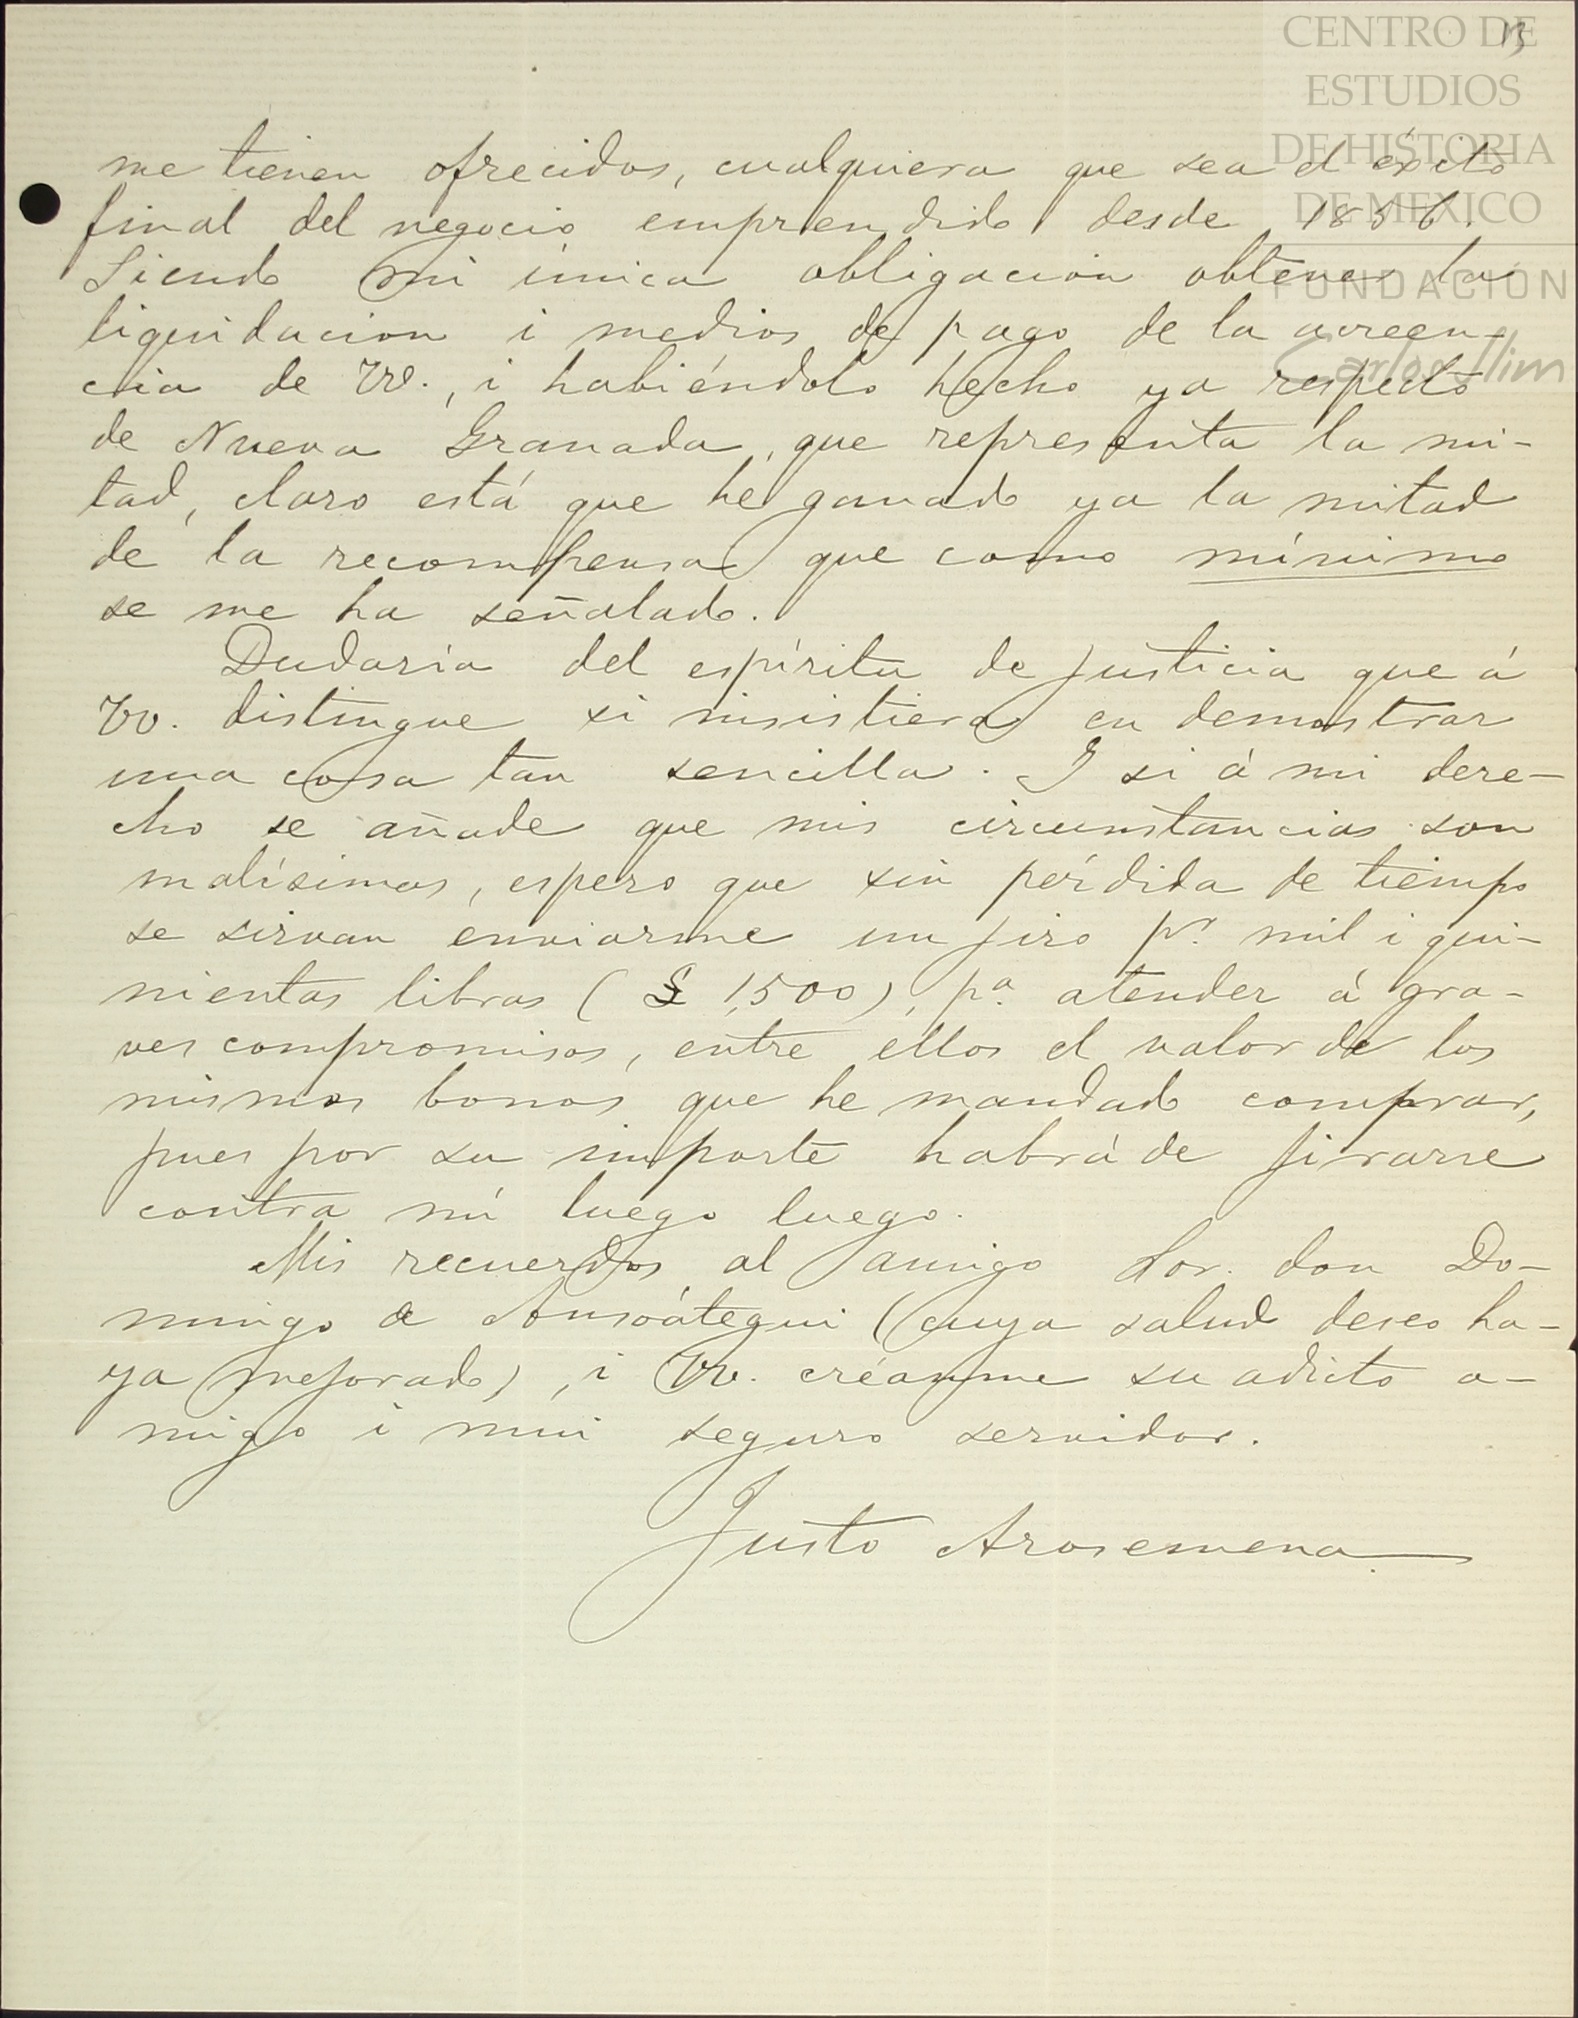 CENTRO DE
ESTUDIOS
DE HISTORIA
DE MEXICO
FUNDACIÓN
Carlos Slim
me tienen ofrecidos, cualquiera que sea el éxito
final del negocio emprendido desde 1856.
Siendo mi única obligacion obtener la
liquidacion i medios de pago de la acreen-
cia de VV., i habiéndolo hecho ya respecto
de Nueva Granada, que representa la mi-
tad, claro está que he ganado ya la mitad
de la recompensa que como mínimo
se me ha señalado.
Dudaría del espíritu de justicia que á
VV. distingue si insistiera en demostrar
una cosa tan sencilla. I si á mi dere-
cho se añade que mis circunstancias son
malísimas, espero que sin pérdida de tiempo
se sirvan enviarme un jiro pr. mil i qui-
nientas libras (£ 1,500), pa. atender á gra-
ves compromisos, entre ellos el valor de los
mismos bonos que he mandado comprar,
pues por su importe habrá de jirarse
contra mí luego luego.
Mis recuerdos al amigo Sor. don Do-
mingo de Ansoátegui (cuya salud deseo ha-
ya mejorado), i VV. créanme su adicto a-
migo i mui seguro servidor.
Justo Arosemena